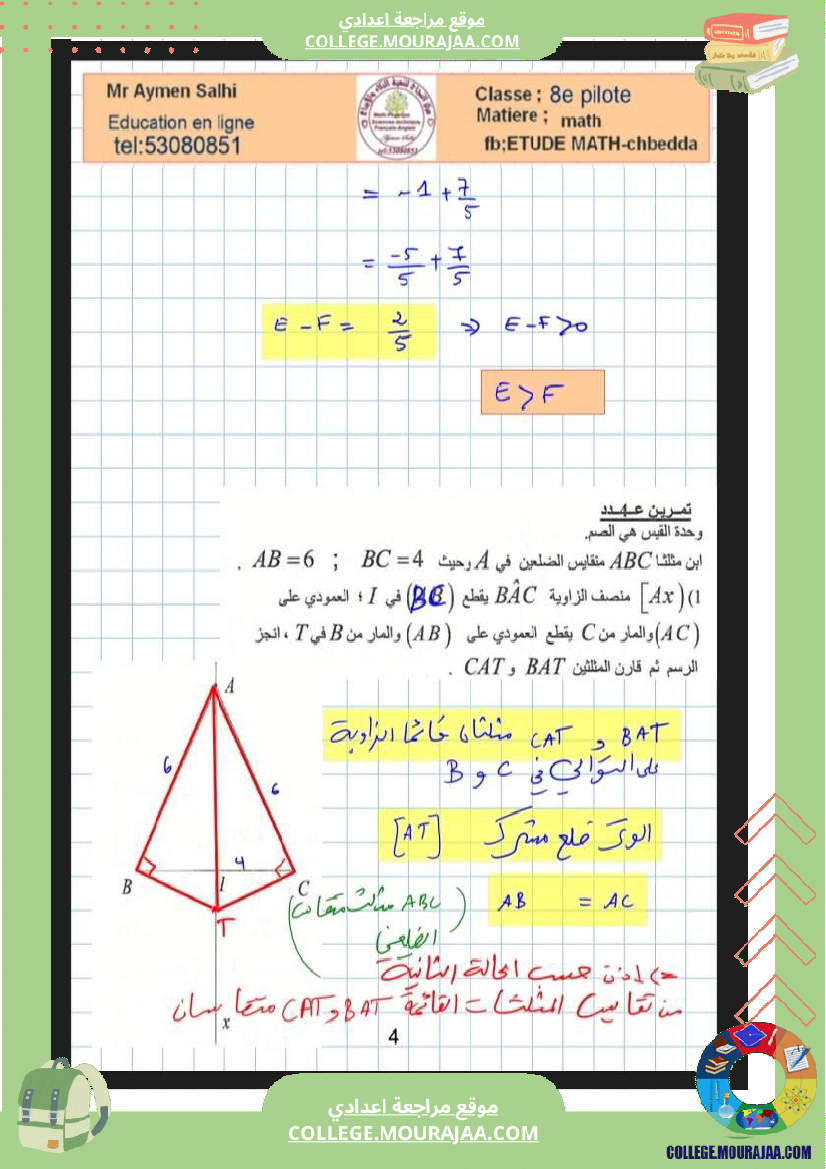 موقع مراجعة اعدادي
COLLEGE.MOURAJAA.COM
Mr Aymen Salhi
Education en ligne
tel:53080851
Classe ; 8e pilote
Matiere ; math
fb;ETUDE MATH-chbedda
= -1 + 7/5
= -5/5 + 7/5
E - F = 2/5 ⇒ E - F > 0
E > F
تمرين عـ4ـدد
وحدة القيس هي الصم.
ابن مثلثا ABC متقايس الضلعين في A وحيث AB = 6 ; BC = 4 .
1) [Ax) منصف الزاوية BÂC يقطع (BC) في I ؛ العمودي على
(AC) والمار من C يقطع العمودي على (AB) والمار من B في T ، انجز
الرسم ثم قارن المثلثين BAT و CAT .
A
6
6
4
B
I
C
T
x
BAT و CAT مثلثان قائما الزاوية
على التوالي في B و C
الوتر ضلع مشترك [AT]
AB = AC
(ABC مثلث متقايس
الضلعين)
=> إذن حسب الحالة الثانية
من تقايس المثلثات القائمة BAT و CAT متقايسان
4
موقع مراجعة اعدادي
COLLEGE.MOURAJAA.COM
COLLEGE.MOURAJAA.COM